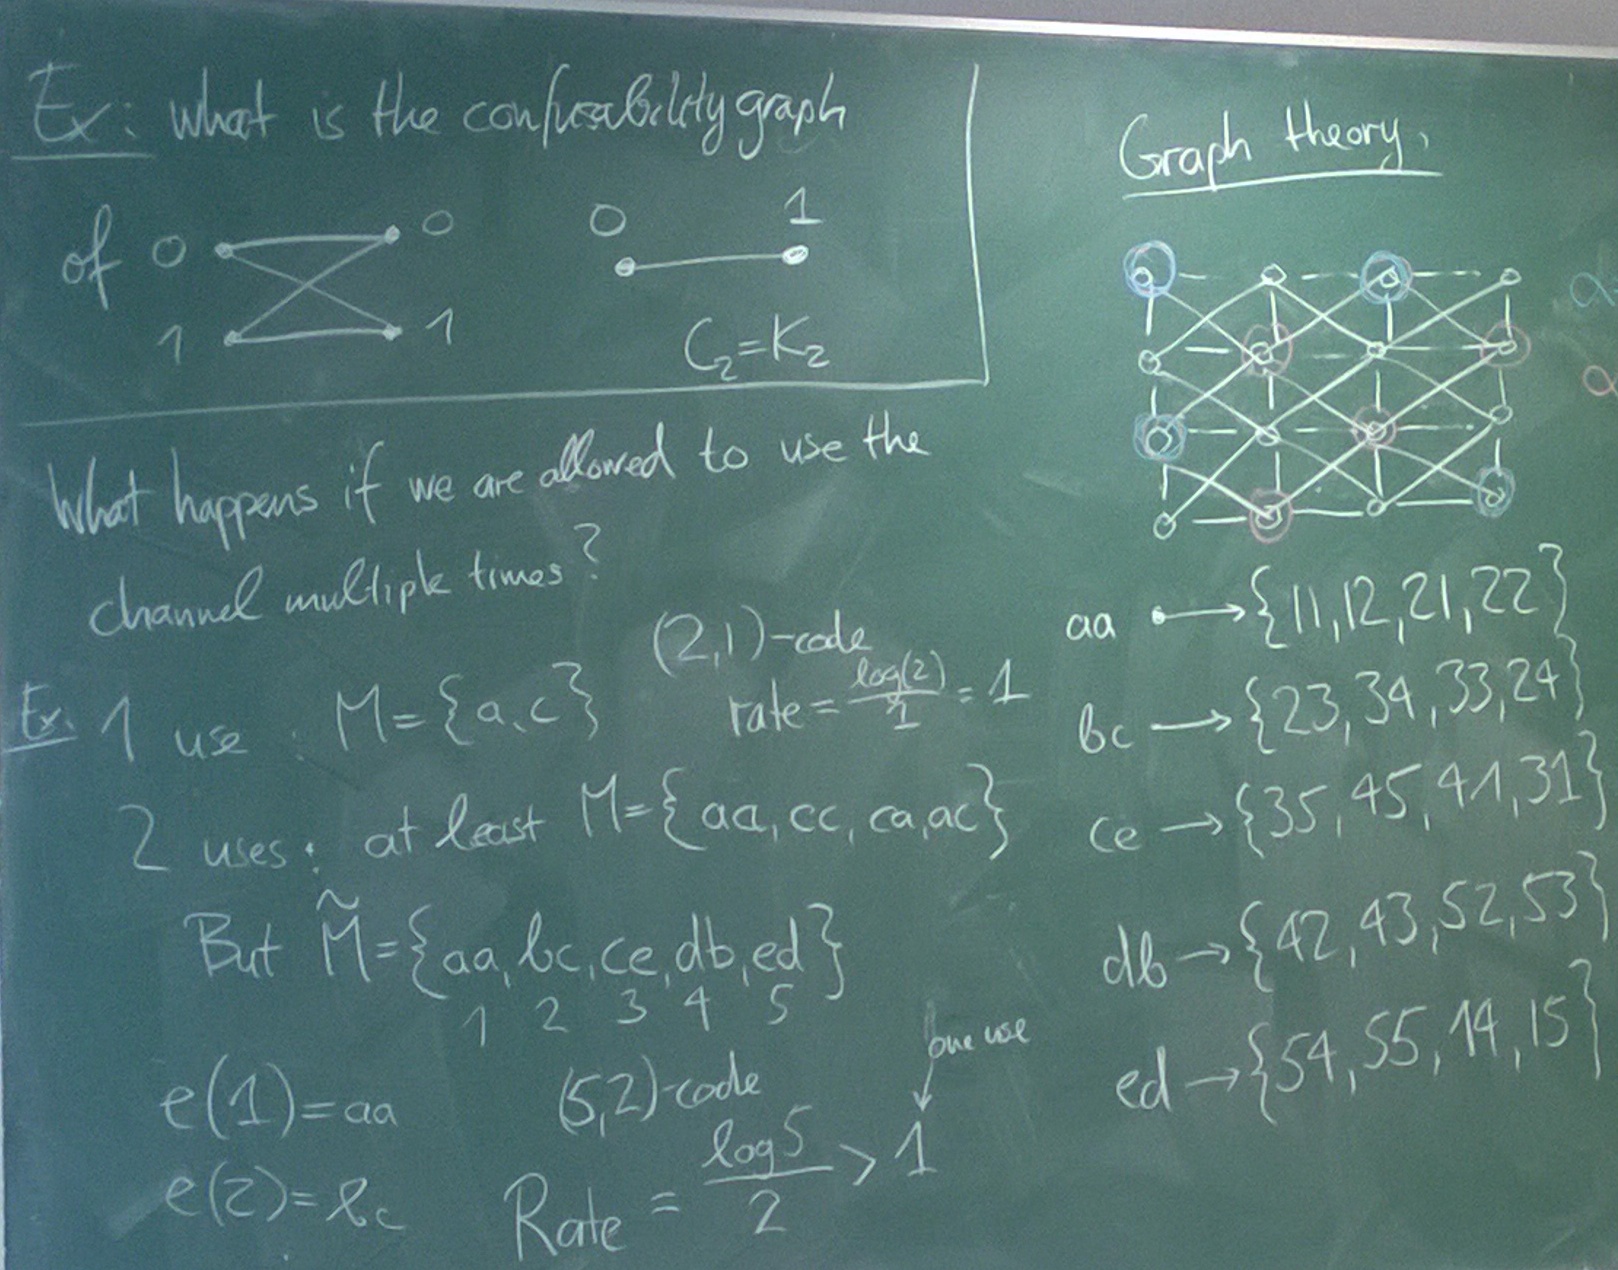 Ex: what is the confusability graph
of 0 0 0 1
1 1 C₂=K₂
What happens if we are allowed to use the
channel multiple times?
(2,1)-code
Ex. 1 use : M={a,c} rate = log(2)/1 = 1
2 uses: at least M={aa,cc,ca,ac}
But M̃={aa,bc,ce,db,ed}
1 2 3 4 5
one use
e(1)=aa (5,2)-code
e(2)=bc Rate = log5/2 > 1
Graph theory.
aa → {11,12,21,22}
bc → {23,34,33,24}
ce → {35,45,41,31}
db → {42,43,52,53}
ed → {54,55,14,15}